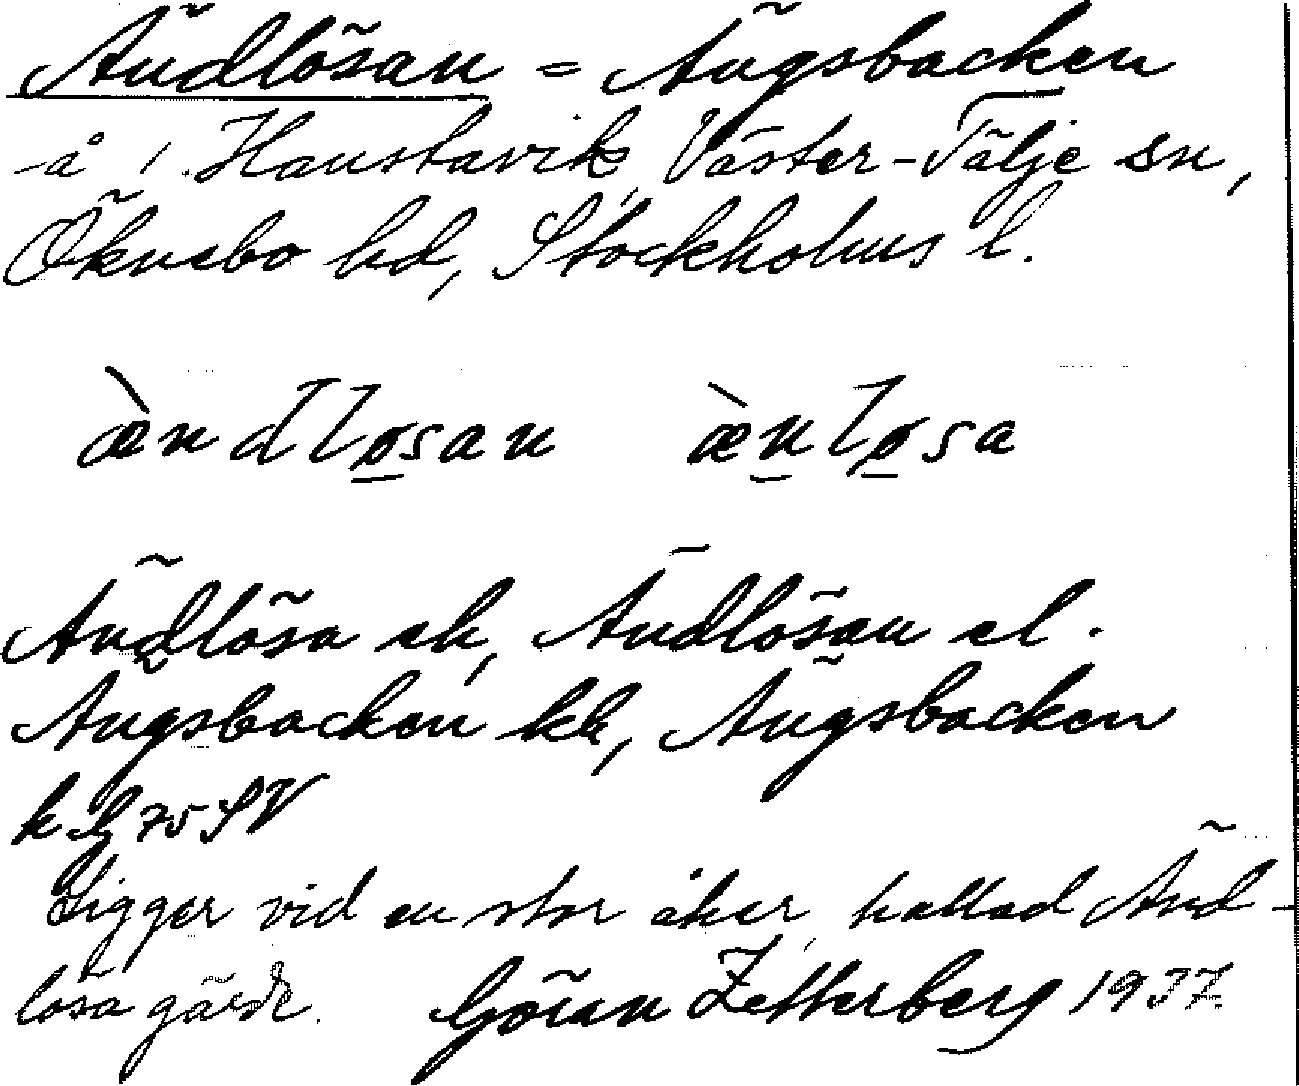 Ändlösan = Ängsbacken
-å i Hanstavik, Väster-Tälje sn,
Öknebo hd, Stockholms l.
æ̀ndlo̲san æ̀n̲lo̲sa
Ändlösa ek, Ändlösan el.
Ängsbacken kb, Ängsbacken
k G 75 SV
Ligger vid en stor åker, kallad Änd-
lösa gärde. Göran Zetterberg 1937.